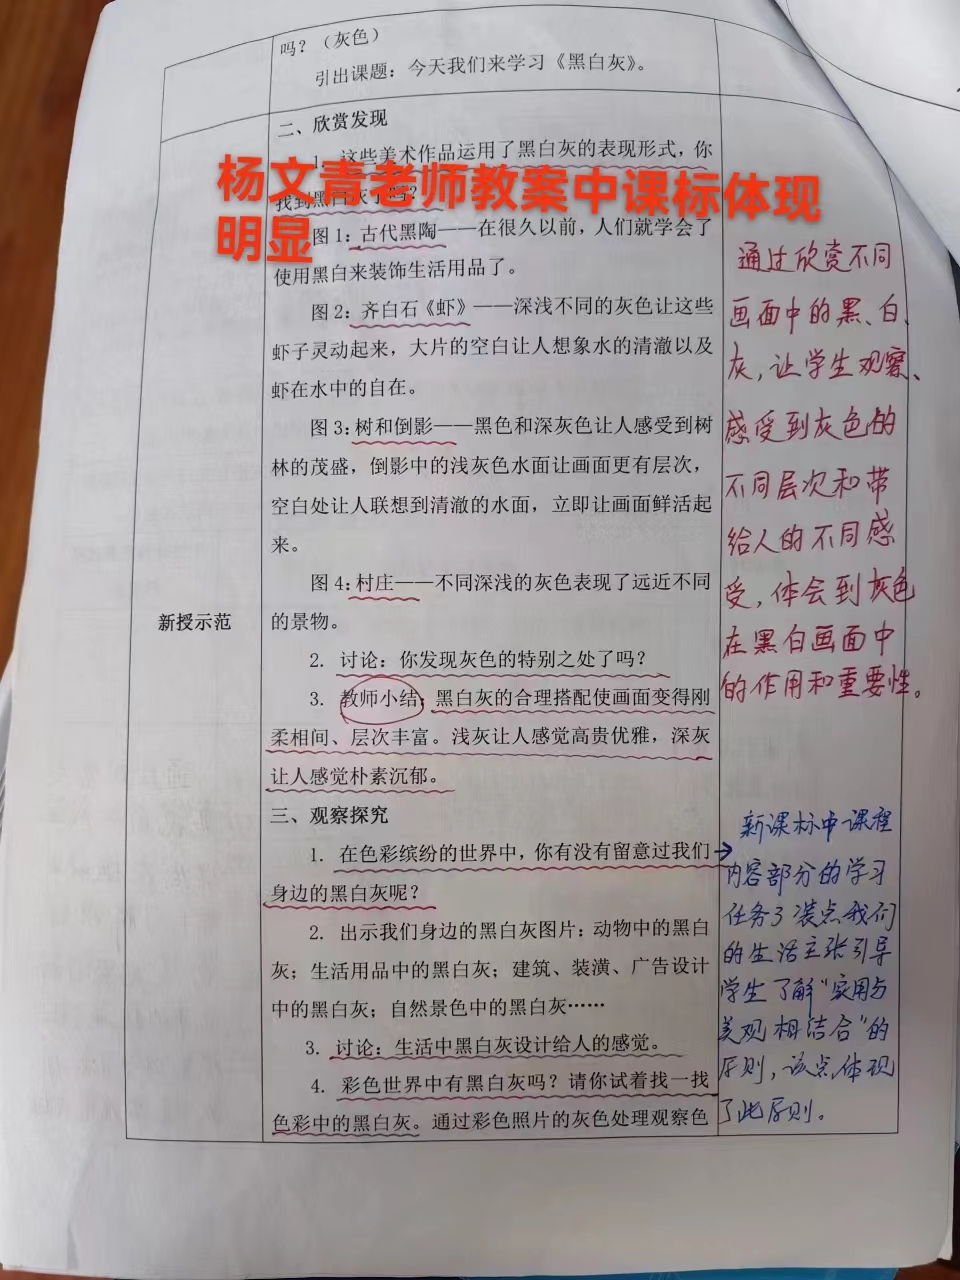 吗？（灰色）
引出课题：今天我们来学习《黑白灰》。
二、欣赏发现
1. 这些美术作品运用了黑白灰的表现形式，你
找到黑白灰了吗？
杨文青老师教案中课标体现
明显
图1：古代黑陶——在很久以前，人们就学会了
使用黑白来装饰生活用品了。
图2：齐白石《虾》——深浅不同的灰色让这些
虾子灵动起来，大片的空白让人想象水的清澈以及
虾在水中的自在。
图3：树和倒影——黑色和深灰色让人感受到树
林的茂盛，倒影中的浅灰色水面让画面更有层次，
空白处让人联想到清澈的水面，立即让画面鲜活起
来。
图4：村庄——不同深浅的灰色表现了远近不同
的景物。
新授示范
2. 讨论：你发现灰色的特别之处了吗？
3. 教师小结：黑白灰的合理搭配使画面变得刚
柔相间、层次丰富。浅灰让人感觉高贵优雅，深灰
让人感觉朴素沉郁。
三、观察探究
1. 在色彩缤纷的世界中，你有没有留意过我们
身边的黑白灰呢？
2. 出示我们身边的黑白灰图片：动物中的黑白
灰；生活用品中的黑白灰；建筑、装潢、广告设计
中的黑白灰；自然景色中的黑白灰……
3. 讨论：生活中黑白灰设计给人的感觉。
4. 彩色世界中有黑白灰吗？请你试着找一找
色彩中的黑白灰。通过彩色照片的灰色处理观察色
通过欣赏不同
画面中的黑、白、
灰，让学生观察、
感受到灰色的
不同层次和带
给人的不同感
受，体会到灰色
在黑白画面中
的作用和重要性。
新课标中课程
内容部分的学习
任务3装点我们
的生活主张引导
学生了解“实用与
美观相结合”的
原则，该点体现
了此原则。